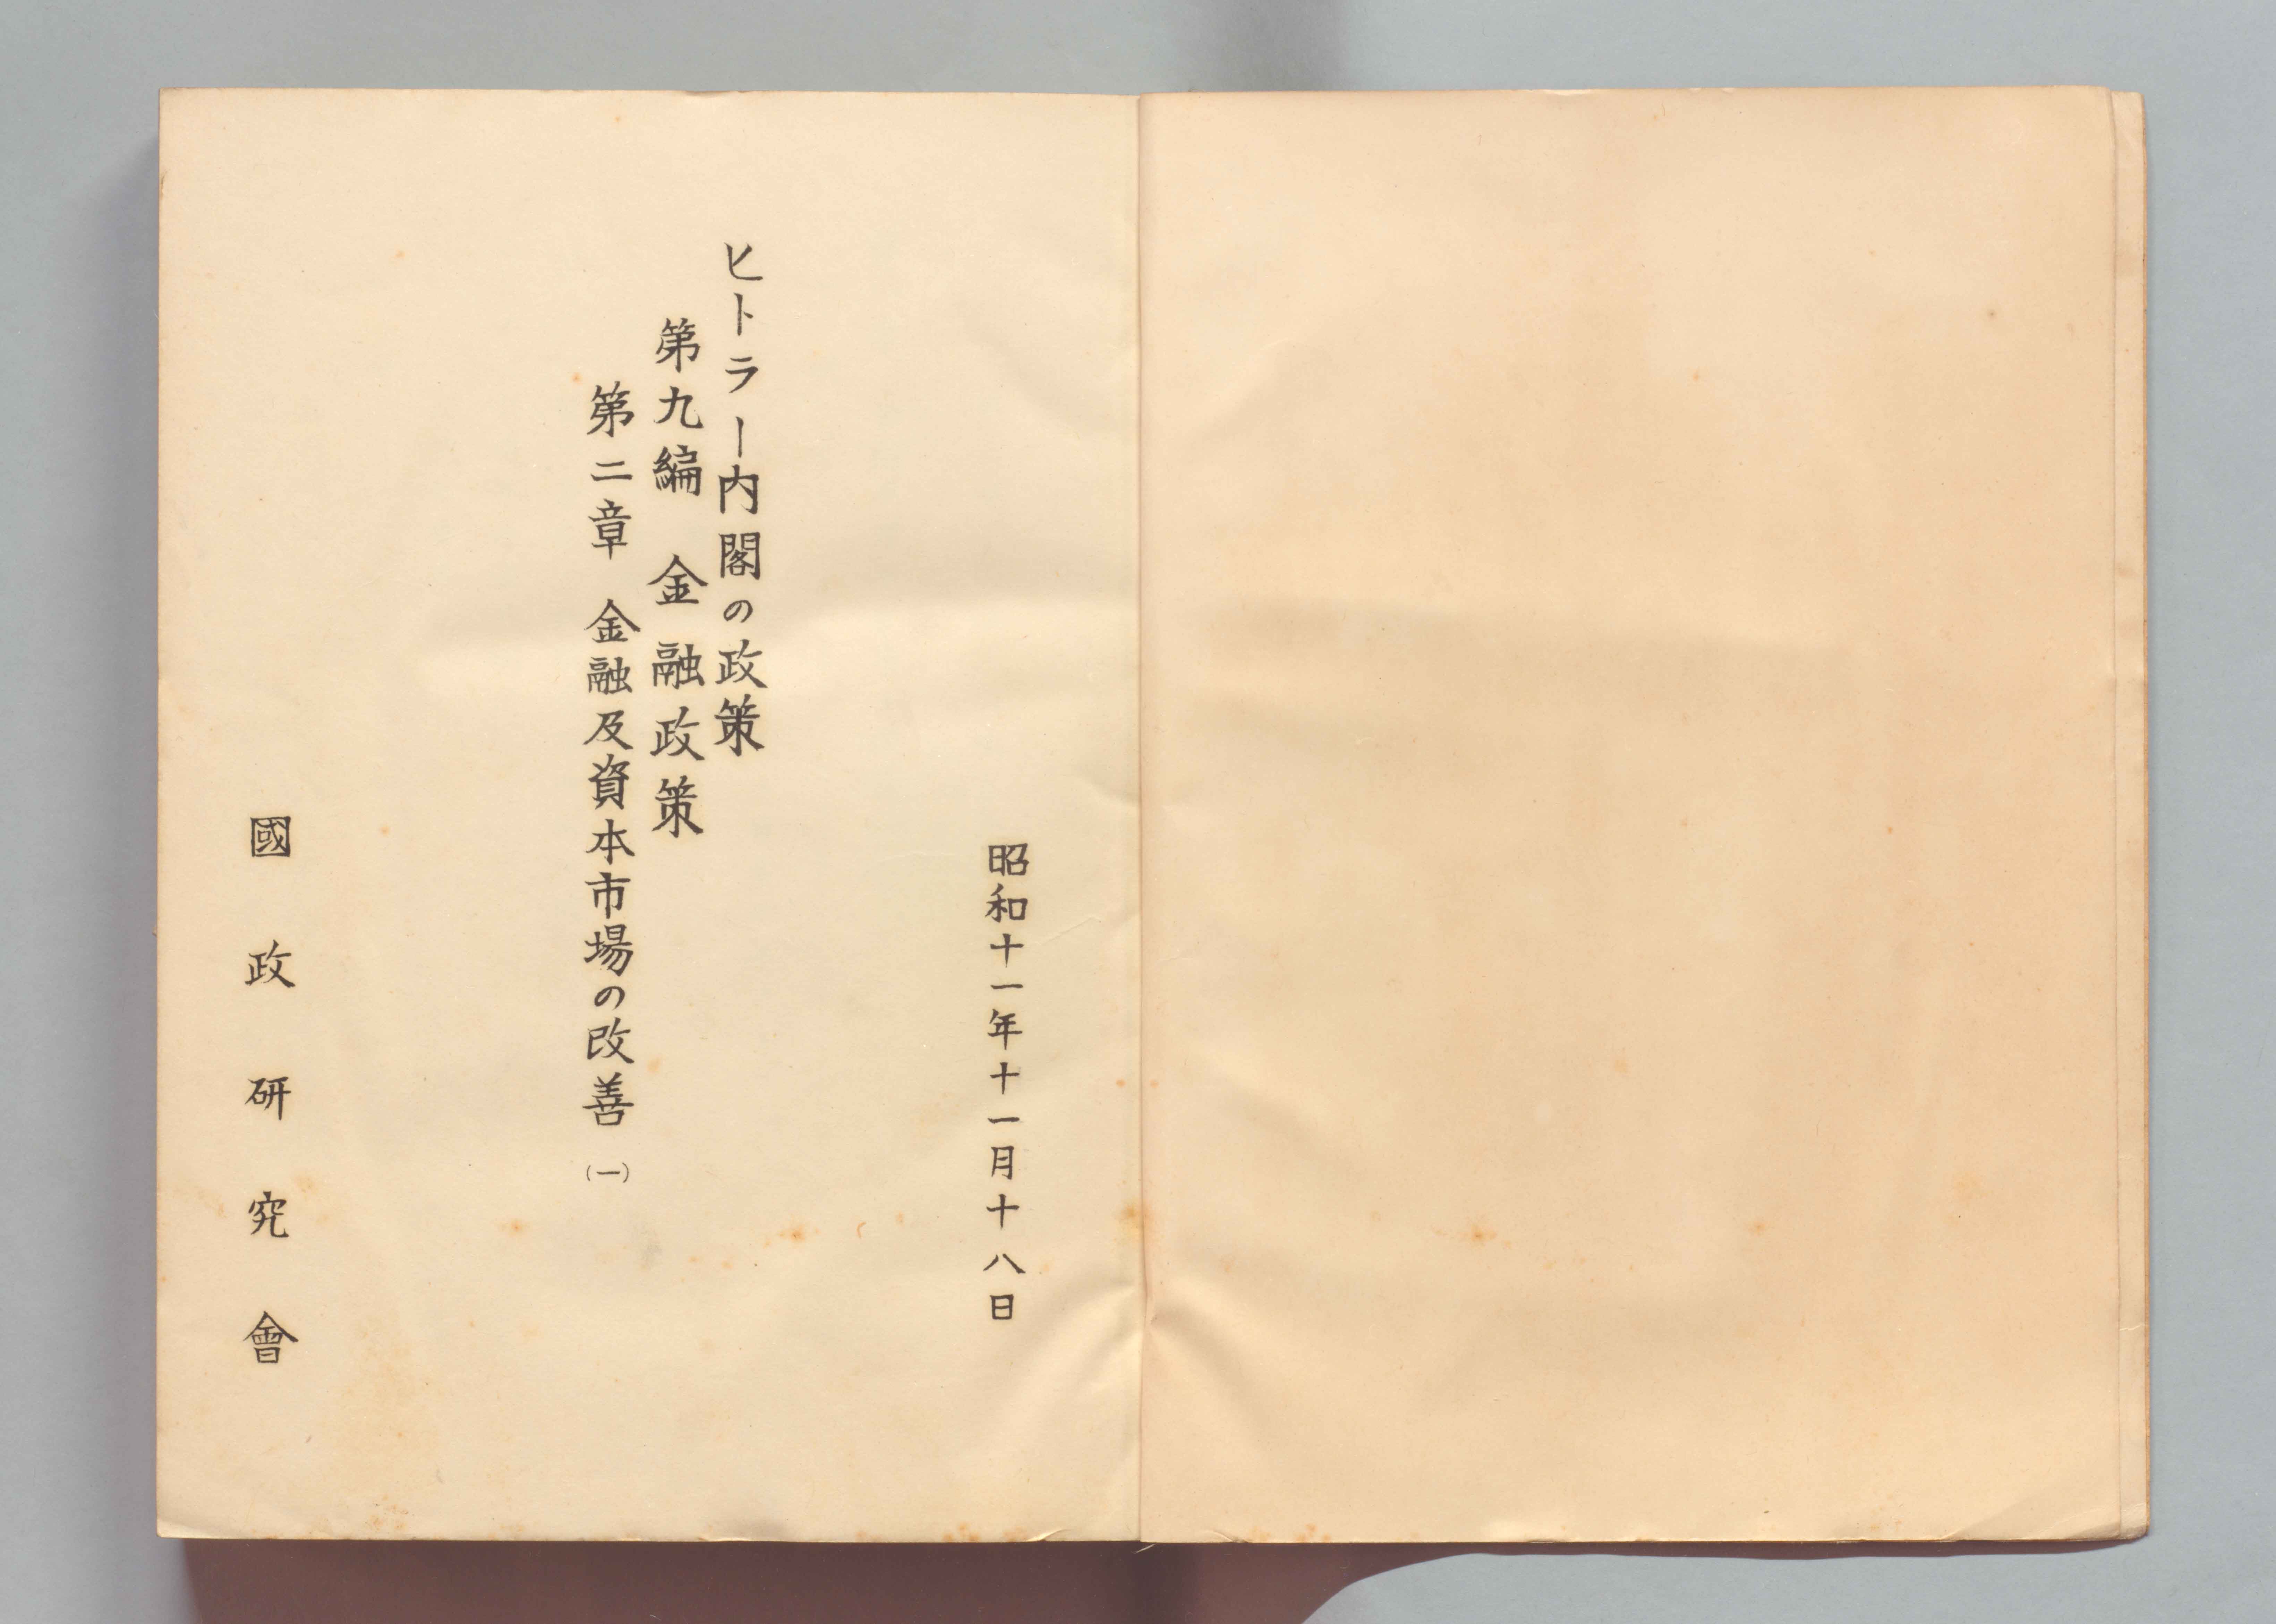 昭和十一年十一月十八日
ヒトラー内閣の政策
第九編　金融政策
第二章　金融及資本市場の改善（一）
國政研究會